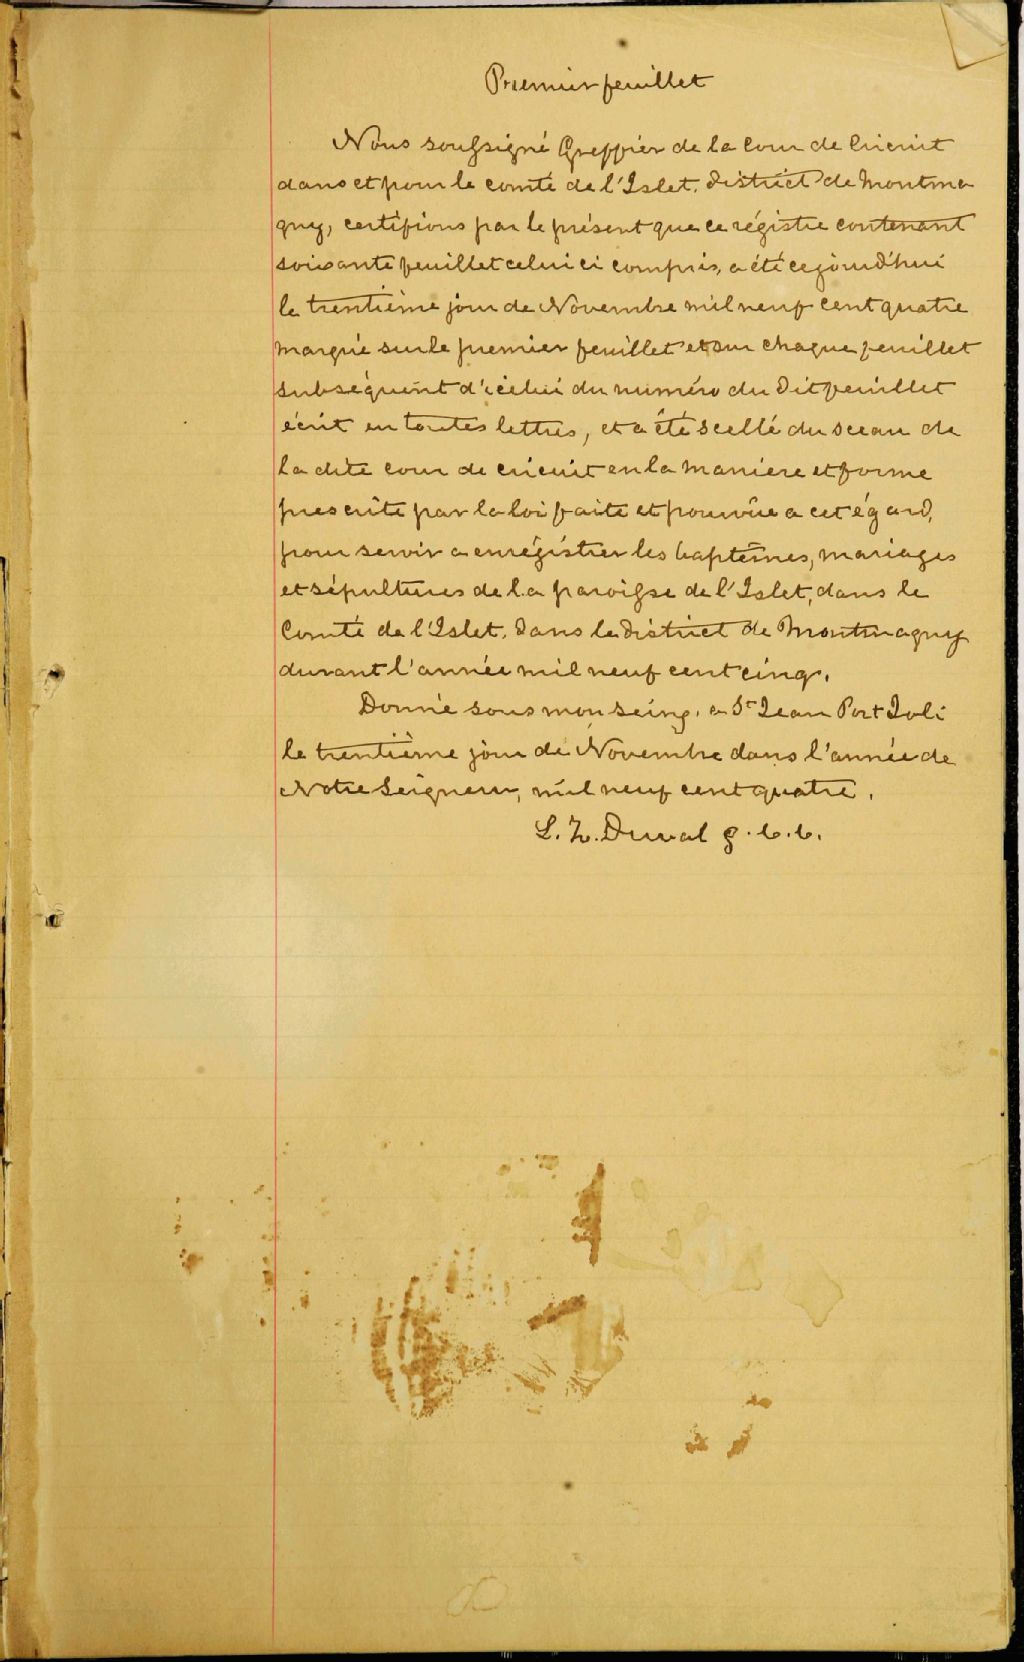 Premier feuillet
Nous soussigné Greffier de la Cour de Circuit
dans et pour le comté de l'Islet. district de Montma
gny, certifions par le présent que ce régistre contenant
soixante feuillet celui ci compris, a été cejourd'hui
le trentième jour de Novembre mil neuf cent quatre
marqué sur le premier feuillet et sur chaque feuillet
subséquent d'icelui du numéro du dit feuillet
écrit en toutes lettres, et a été scellé du sceau de
la dite cour de circuit en la maniere et forme
prescrite par la loi faite et pourvûe a cet égard,
pour servir a enrégistrer les baptêmes, mariages
et sépultures de la paroisse de l'Islet, dans le
Comté de l'Islet. dans le district de Montmagny
durant l'année mil neuf cent cinq.
Donné sous mon seing. a St Jean Port Joli
le trentième jour de Novembre dans l'année de
Notre Seigneur, mil neuf cent quatre.
L. Z. Duval g. c. c.